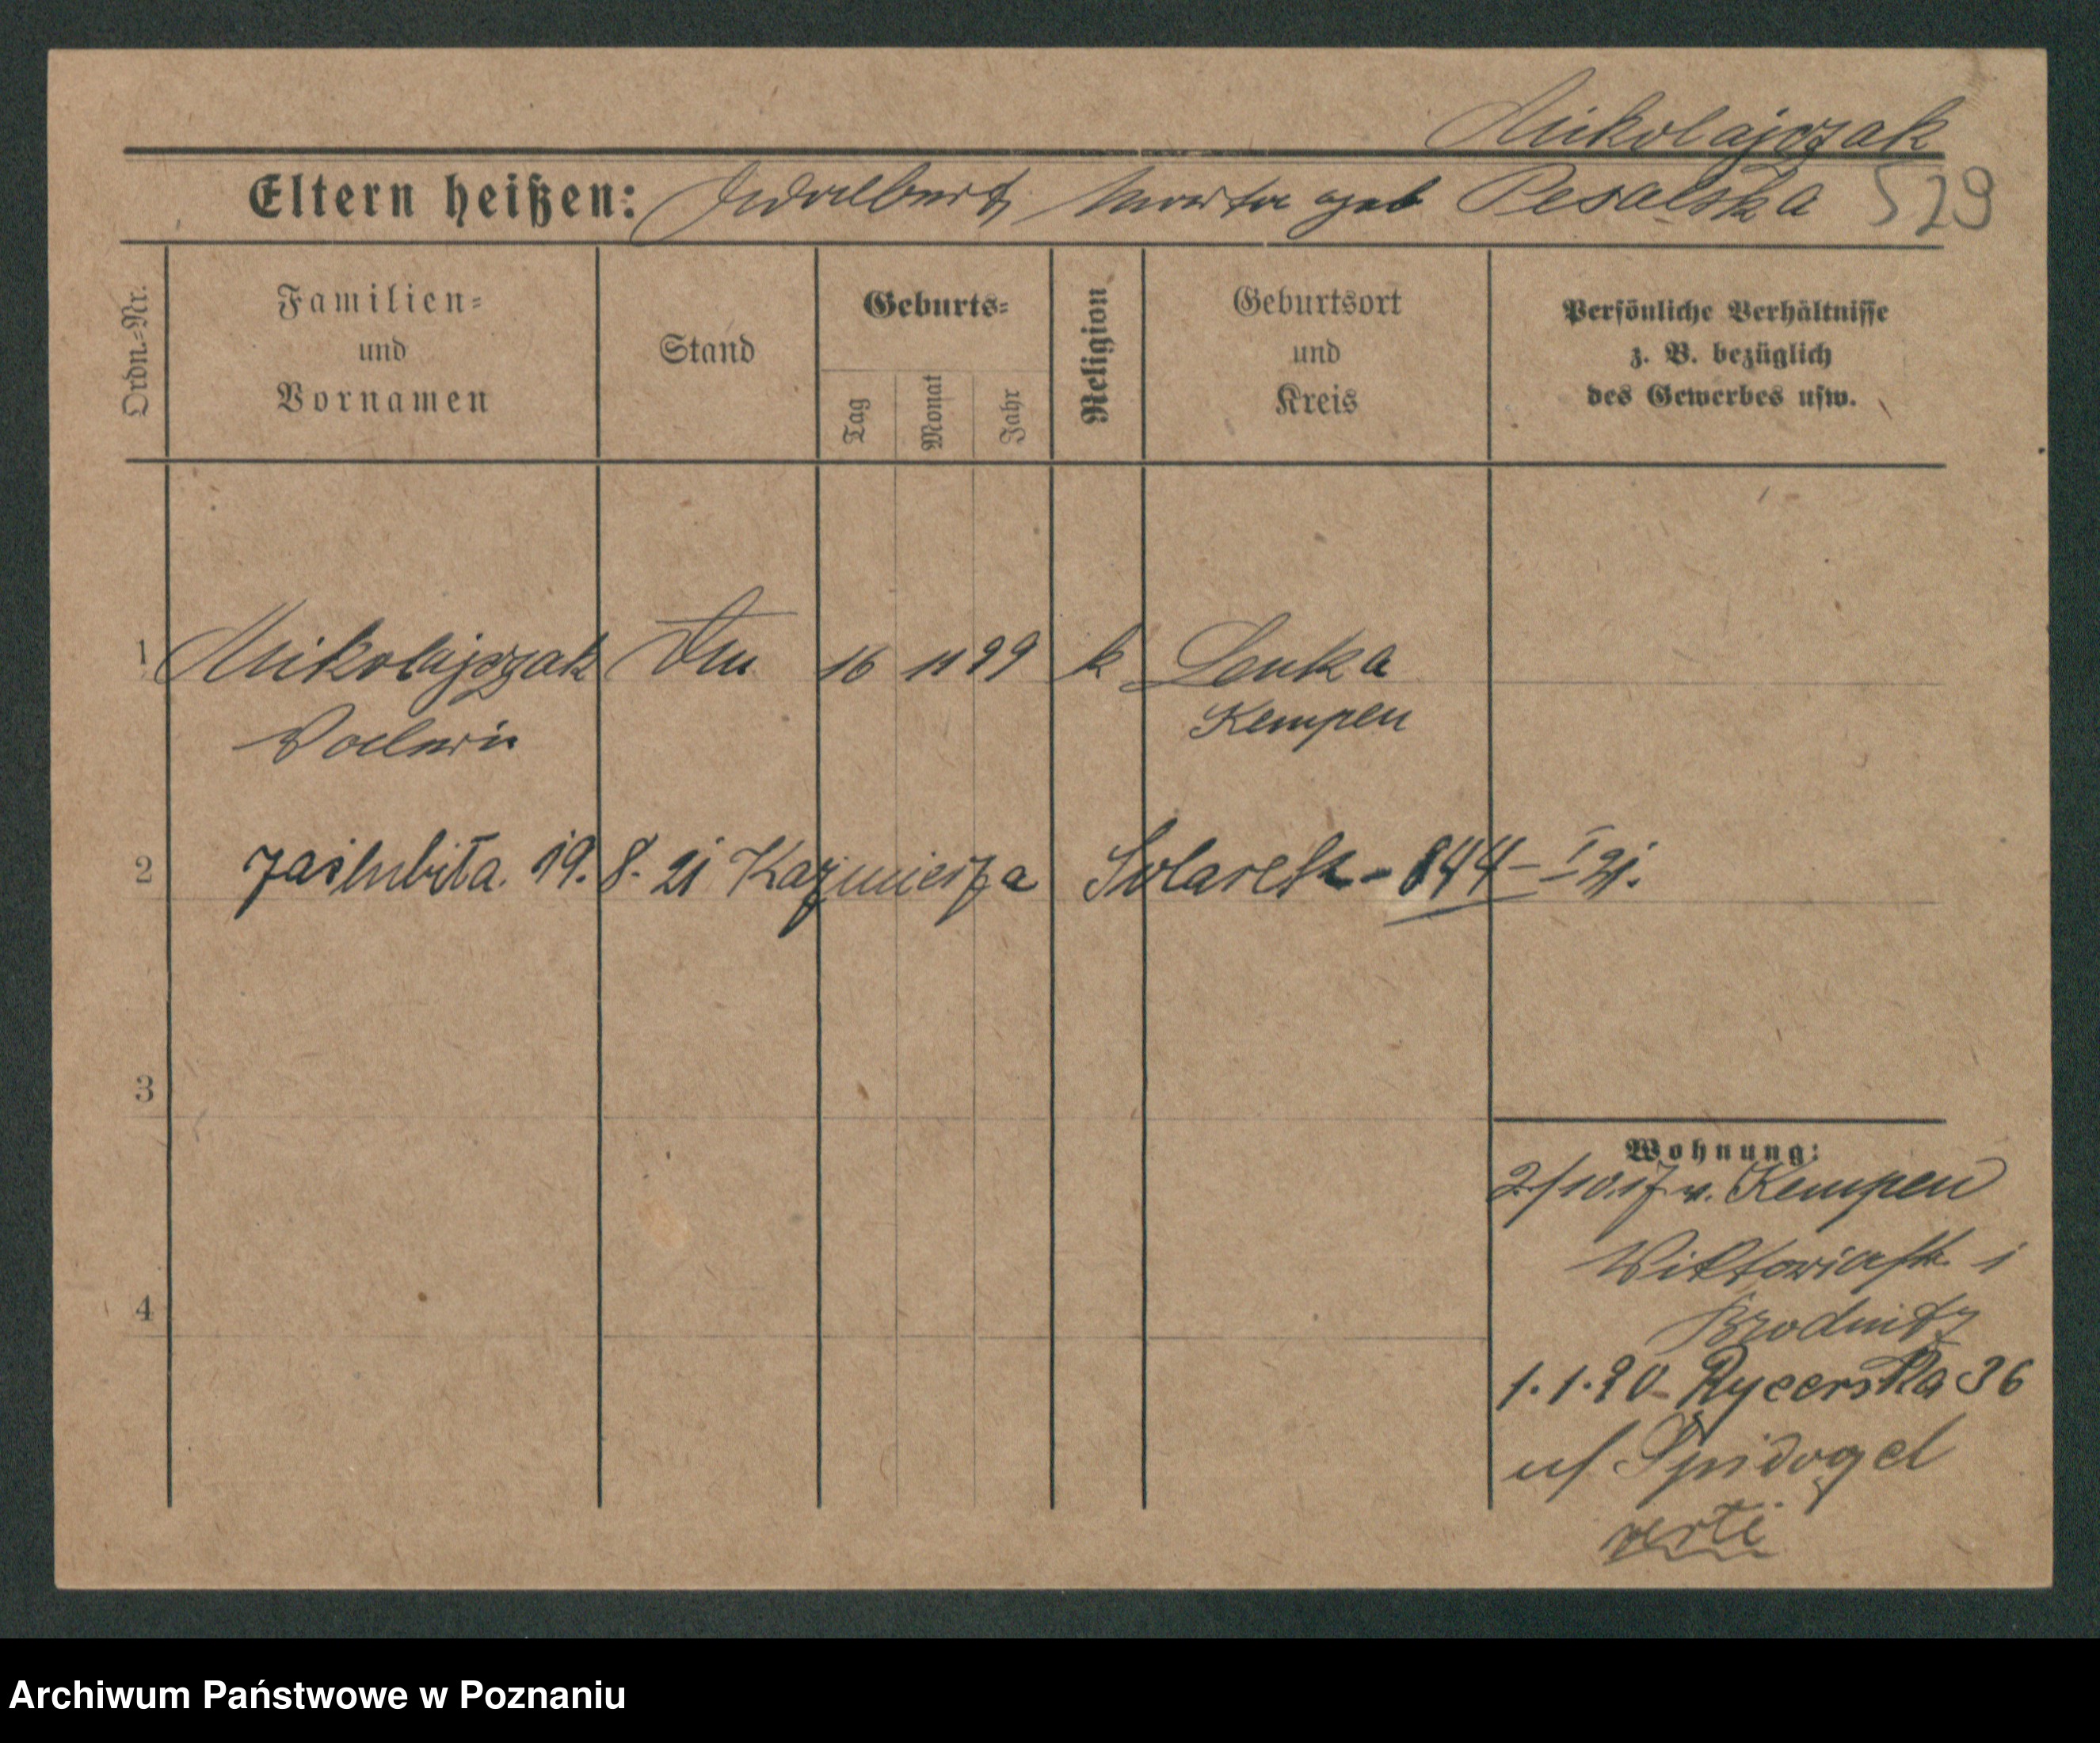 Mikolajczak
Eltern heißen: Adalbert Marta geb Pesalska 529
Ordn.=Nr.
Familien=
und
Vornamen
Stand
Geburts=
Tag
Monat
Jahr
Religion
Geburtsort
und
Kreis
Persönliche Verhältnisse
z. B. bezüglich
des Gewerbes usw.
1 Mikolajczak 16 11 99 k Lenka
Kempen
2 zaślubiła. 19. 8. 21 Kazimierza Solarek - 844 - I 21.
3
4
Wohnung:
2/10.17 v. Kempen
Viktoriastr. 1
Brodnitz
1.1.20 - Rycerska 36
u/ Spidogel
verte
Archiwum Państwowe w Poznaniu